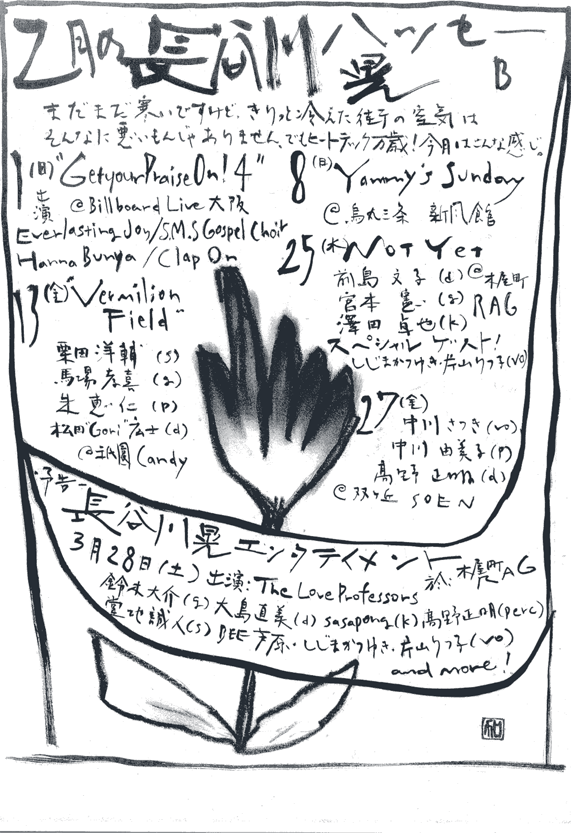 2月の長谷川晃ハッセー
B
まだまだ寒いですけど、きりっと冷えた街の空気は
そんなに悪いもんじゃありません。でもヒートテック万歳!今月はこんな感じ。
1(日)"GetyourPraiseOn!4"
出演 @Billboard Live 大阪
Everlasting Joy/S.M.S Gospel Choir
Hanna Bunya/Clap On
13(金)"Vermilion
Field"
栗田洋輔(s)
馬場孝喜(g)
朱恵仁(p)
松田"Gori"広士(d)
@祇園Candy
8(日)Yammy's Sunday
@烏丸三条 新風館
25(水)Not Yet
前島文子(d)@木屋町
宮本憲(g) RAG
澤田卓也(k)
スペシャルゲスト!
しじまかつゆき・片山りつ子(vo)
27(金)
中川さつき(vo)
中川由美子(p)
高野正明(d)
@双ヶ丘 SOEN
-予告-
長谷川晃エンタテイメント
3月28日(土)出演:The Love Professors 於:木屋町RAG
鈴木大介(g)大島直美(d)sasapong(k)高野正明(perc)
堂地誠人(s)DEE芦原・しじまかつゆき・片山りつ子(vo)
and more!